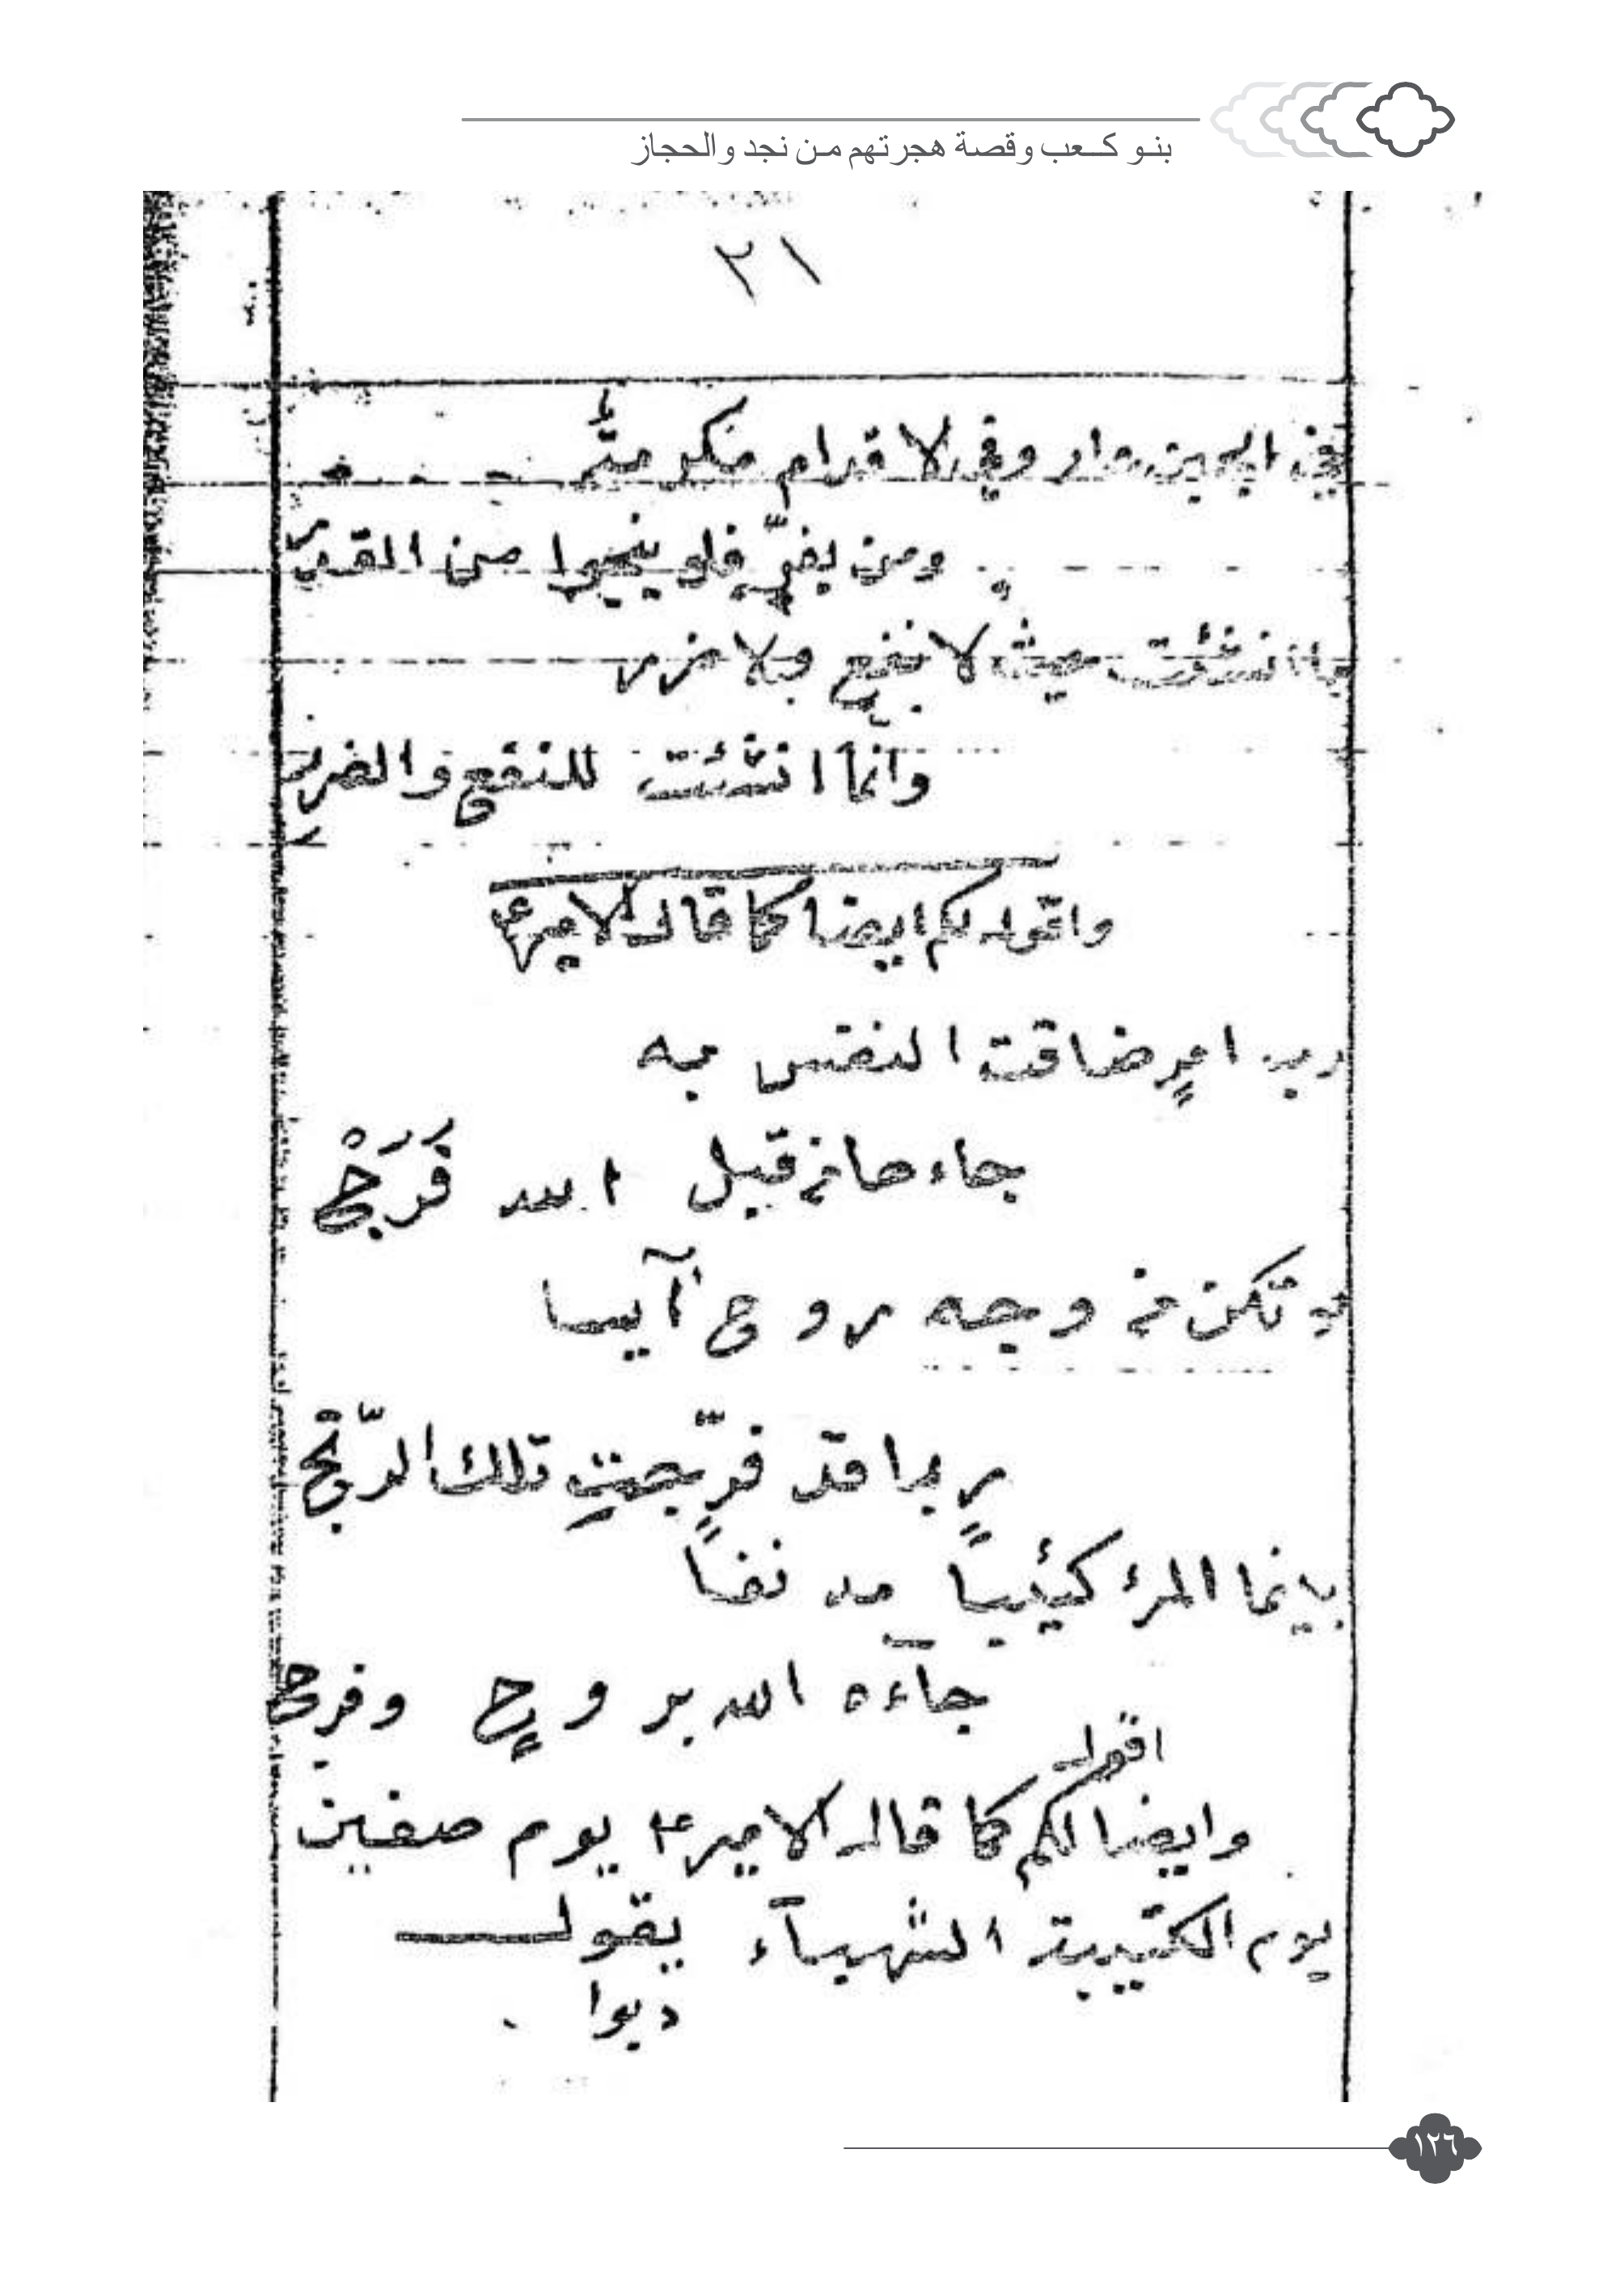 بنو كعب وقصة هجرتهم من نجد والحجاز
٢١
في الجبن عار وفي الاقدام مكرمتٌ
ومن يفرّ فلو ينجوا من القدرِ
انشئت حيث لا نفع ولا ضرر
وانّما انشئت للنفع والضرر
واقول لكم ايضا كما قال الامير ع
رب امرٍ ضاقت النفس به
جاءها من قبل الله فَرَجْ
لا تكن من وجه روح آيسا
ربما قد فرّجت تلك الرّتج
بينما المرء كئيباً مدنفاً
جآءه الله بروحٍ وفرج
اقول
وايضا لكم كما قال الامير ع يوم صفين
يوم الكتيبة الشهبآء يقول
دبوا
١٢٦